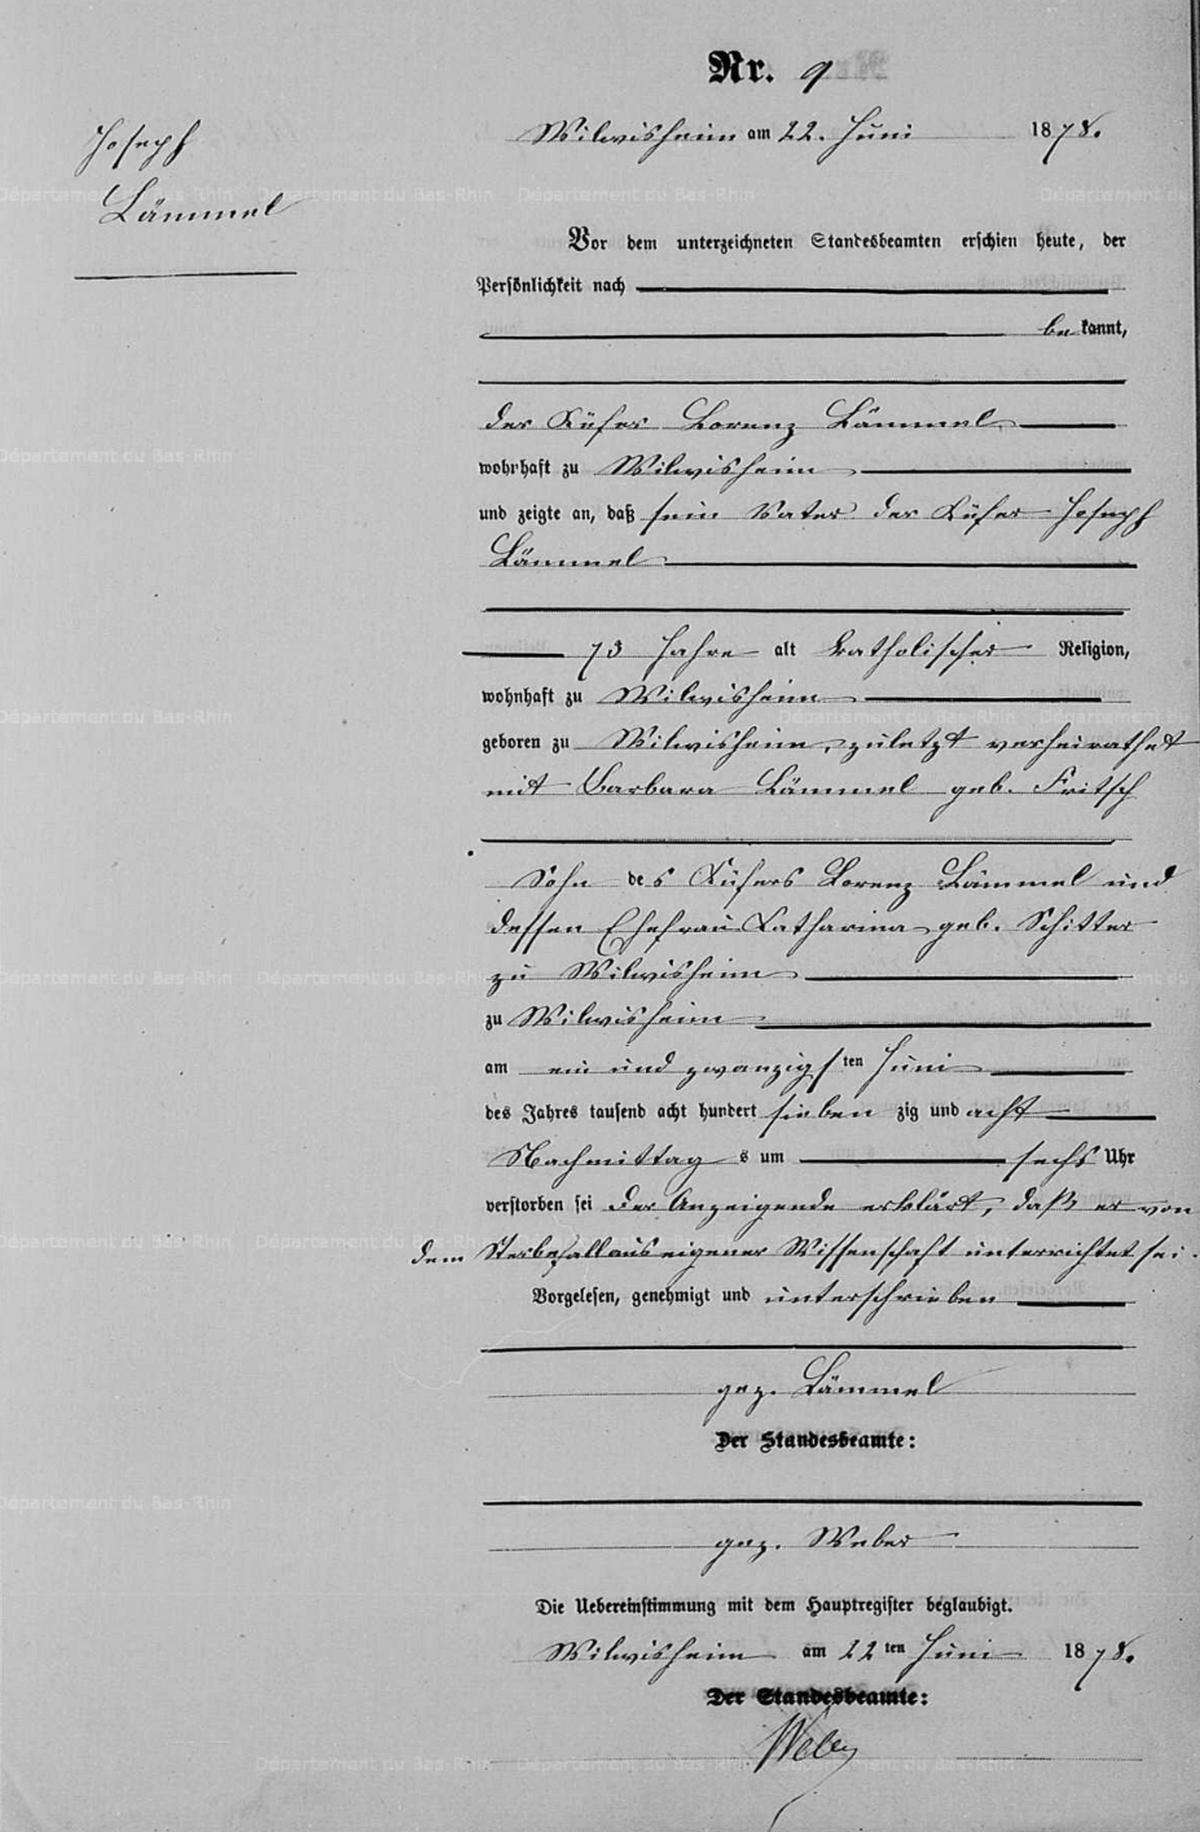 Nr. 9
Joseph
Lämmel
Wilwisheim am 22. Juni 1878.
Vor dem unterzeichneten Standesbeamten erschien heute, der
Persönlichkeit nach
bekannt,
der Küfer Lorenz Lämmel
wohnhaft zu Wilwisheim
und zeigte an, daß sein Vater der Küfer Joseph
Lämmel
73 Jahre alt katholischer Religion,
wohnhaft zu Wilwisheim
geboren zu Wilwisheim, zuletzt verheirathet
mit Barbara Lämmel geb. Fritsch
Sohn des Küfers Lorenz Lämmel und
dessen Ehefrau Katharina geb. Schitter
zu Wilwisheim
zu Wilwisheim
am ein und zwanzigsten Juni
des Jahres tausend acht hundert siebenzig und acht
Nachmittags um sechs Uhr
verstorben sei Der Anzeigende erklärt, daß er von
dem Sterbefall aus eigener Wissenschaft unterrichtet sei.
Vorgelesen, genehmigt und unterschrieben
gez. Lämmel
Der Standesbeamte:
gez. Weber
Die Uebereinstimmung mit dem Hauptregister beglaubigt.
Wilwisheim am 22ten Juni 1878.
Der Standesbeamte:
Weber
Département du Bas-Rhin